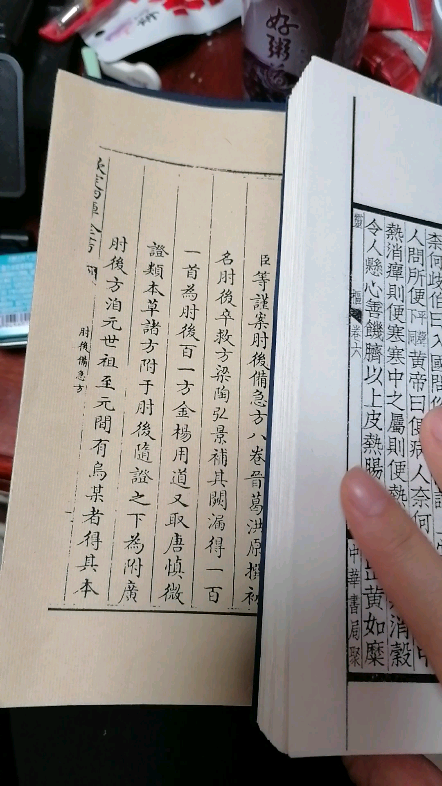 好粥
奈何歧伯曰入國問俗
人問所便平聲黃帝曰便病人奈何
熱消癉則便寒寒中之屬則便熱
令人懸心善饑臍以上皮熱腸
黃如糜
消穀
靈樞卷六
中華書局聚
臣等謹案肘後備急方八卷晉葛洪原撰初
名肘後卒救方梁陶弘景補其闕漏得一百
一首為肘後百一方金楊用道又取唐慎微
證類本草諸方附于肘後隨證之下為附廣
肘後方洎元世祖至元間有烏某者得其本
欽定四庫全書
肘後備急方